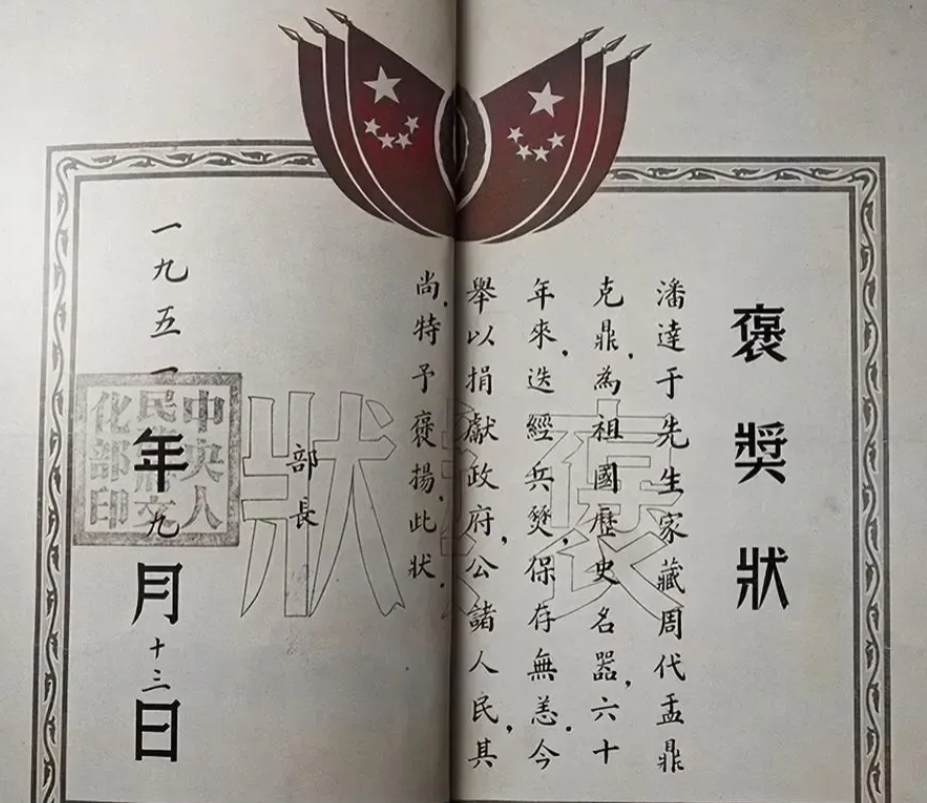 褒奨狀
潘達于先生家藏周代盂鼎
克鼎，為祖國歷史名器，六十
年來，迭經兵燹，保存無恙．今
舉以捐獻政府，公諸人民，其
尚．特予褒揚，此狀．
部長
一九五一年九月十三日
中央人
民政府文
化部印
褒奨狀